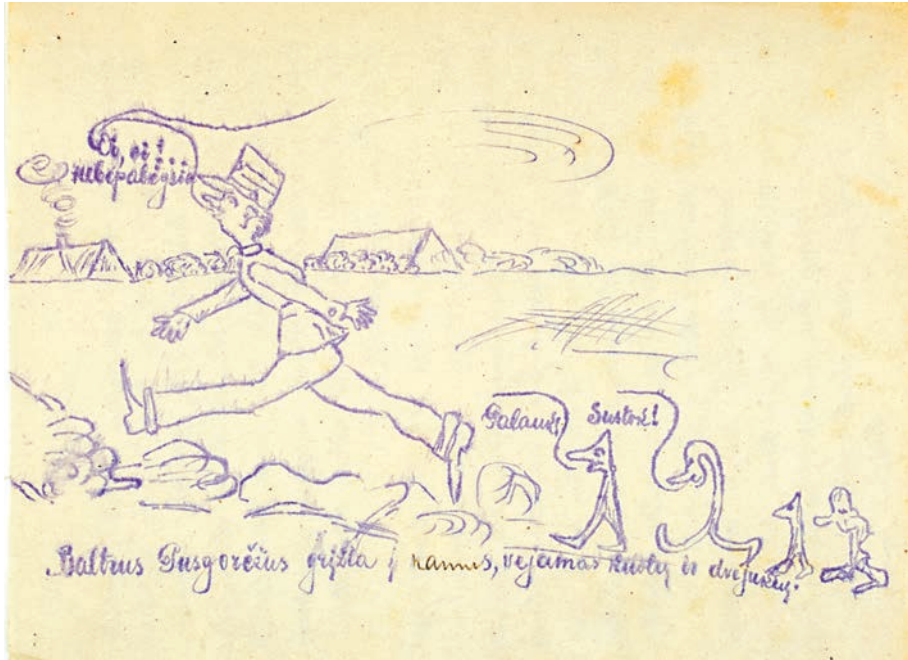 Oi, oi!...
nebepabėgsiu
Palauk
Sustok!
Baltrus Pusgorčius grįžta į namus, vejamas kuolų ir dvejukių.